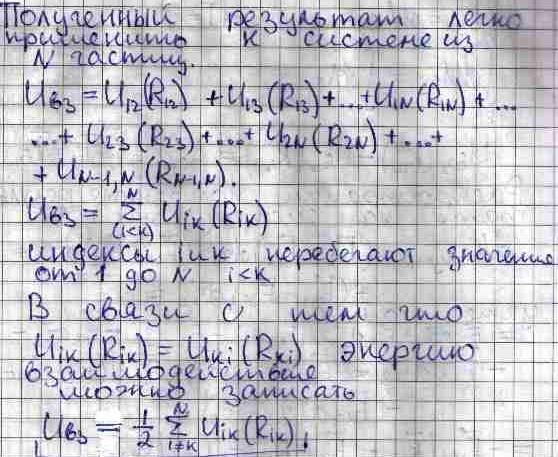 Полученный результат легко
применить к системе из
N частиц.
Uвз = U₁₂(R₁₂) + U₁₃(R₁₃) + ... + U₁N(R₁N) + ...
... + U₂₃(R₂₃) + ... + U₂N(R₂N) + ... +
+ U_{N-1,N}(R_{N-1,N}).
Uвз = Σ^N_{(i<k)} U_{ik}(R_{ik})
индексы i и к перебегают значение
от 1 до N i<k
В связи с тем что
U_{ik}(R_{ik}) = U_{ki}(R_{ki}) энергию
взаимодействие
можно записать
Uвз = 1/2 Σ^N_{i≠k} U_{ik}(R_{ik}).